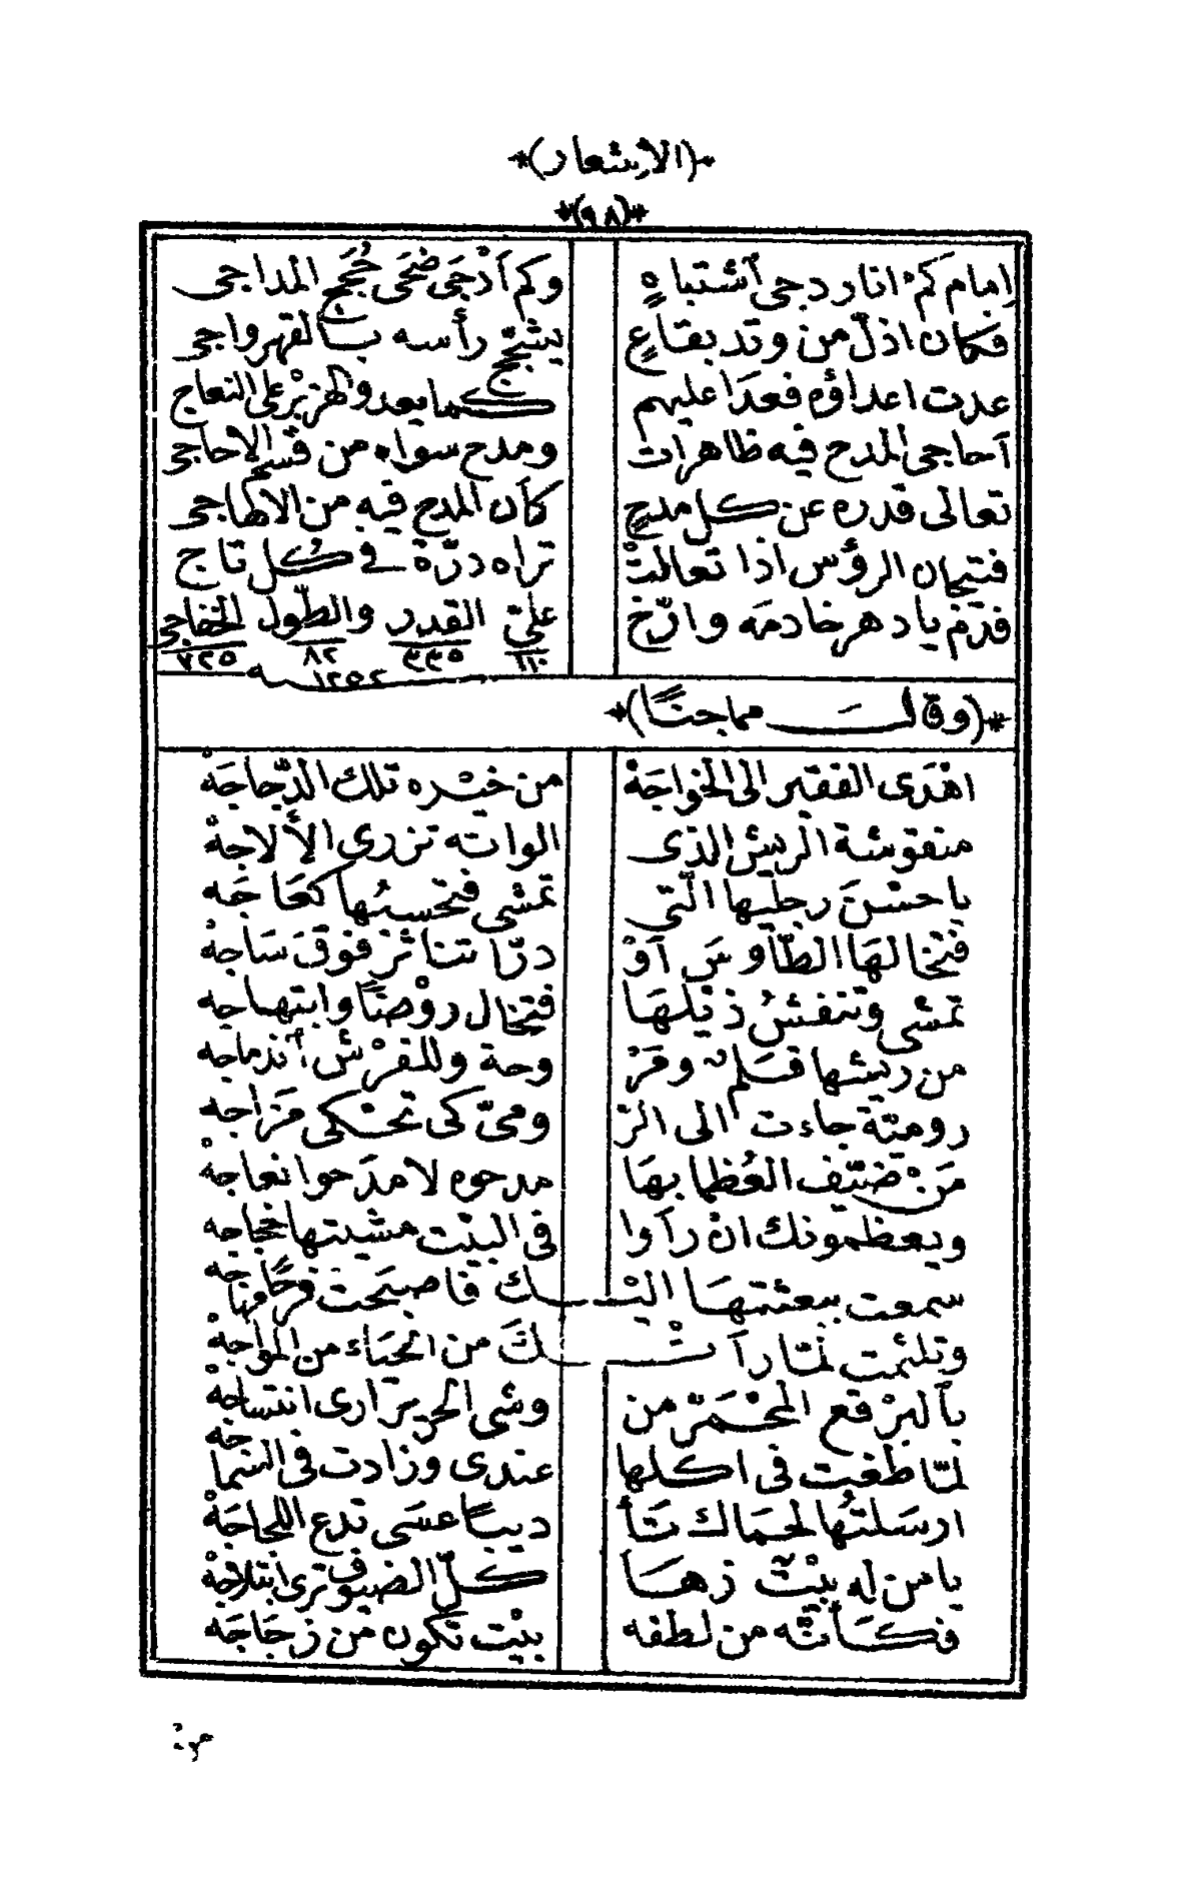 *(الاشعار)*
*(٩٨)*
امام كم انار دجى اشتباهٍ وكم اَدْجَى ضحَى حُجَج المداجى
فكان اذلّ من وتد بقاعٍ يشجّج رأسه بالقهر واجى
عدت اعداؤه فعدَا عليهم كما يعدو الهزبْر على النعاج
اَحاجى المدح فيه ظاهرات ومدح سواه من قسم الاحاجى
تعالى قدره عن كل مدحٍ كأن المدح فيه من الاهاجى
فتيجان الرؤس اذا تعالتْ تراه درّة فى كُل تاج
فدُم يا دهر خادمه وارّخ علىّ القدر والطّول الخفاجى
١١٠ ٣٣٥ ٨٢ ٧٢٥
سنه ١٢٥٢
*(وقال مماجنًا)*
اهْدَى الفقير الى الخواجَهْ من خيْره تلك الدّجاجَهْ
منقوشة الريش الذى الوانه تزرى الألاجهْ
يا حسْنَ رجليها الّتى تمشى فتحسبُها كعَاجَه
فتخالهَا الطّاوسَ اَوْ درّا تناثرَ فوقَ سَاجهْ
تمشى وتنفشُ ذيْلهَا فتخال روْضًا وابتهاجه
من ريشها قلم وفرْ وحة وللفرْش اَندماجه
روميّة جاءت الى الرّ ومىّ كى تحْكى مَزاجه
مَنْ ضيّف العُظما بهَا مدحوه لا مدَحوا نعاجهْ
ويعظمونك انْ رَاَوا فى البيْت مشيتها خجاجه
سمعت ببعثتهَا اليْــك فاصبحت فرحًا مهاجه
وتلثمت لمّا رأتْــكَ من الحيَاء من المواجهْ
بالبرْقع المحْمَرّ من وشى الحرير ارى انتساجهْ
لمّا طغت فى اكلها عندى وزادت فى السّماجه
ارسَلتُها لحمَاك تَأ ديبًا عسَى تدع اللجاجَهْ
يا من له بيْت زهَا كلّ الضيوف ترى ابتلاجهْ
فكَأنّه من لطفه بيْت تكون من زجَاجَه
من